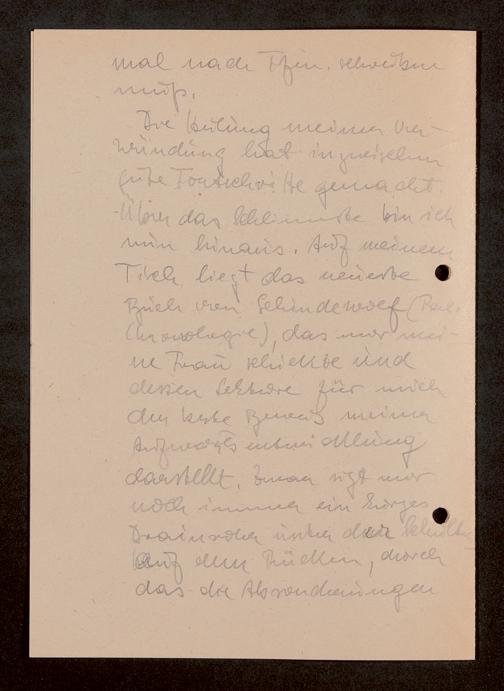 mal nach Tbgn. schreiben
muß.
Die Heilung meiner Ver-
wundung hat inzwischen
gute Fortschritte gemacht.
Über das Schlimmste bin ich
nun hinaus. Auf meinem
Tisch liegt das neueste
Buch von Schindewolf (Pal.
Chronologie), das mir mei-
ne Frau schickte und
dessen Lektüre für mich
den besten Beweis meiner
Aufwärtsentwicklung
darstellt. Zwar sitzt mir
noch immer ein kurzes
Drainrohr unter der Schulter
auf dem Rücken, durch
das die Absonderungen